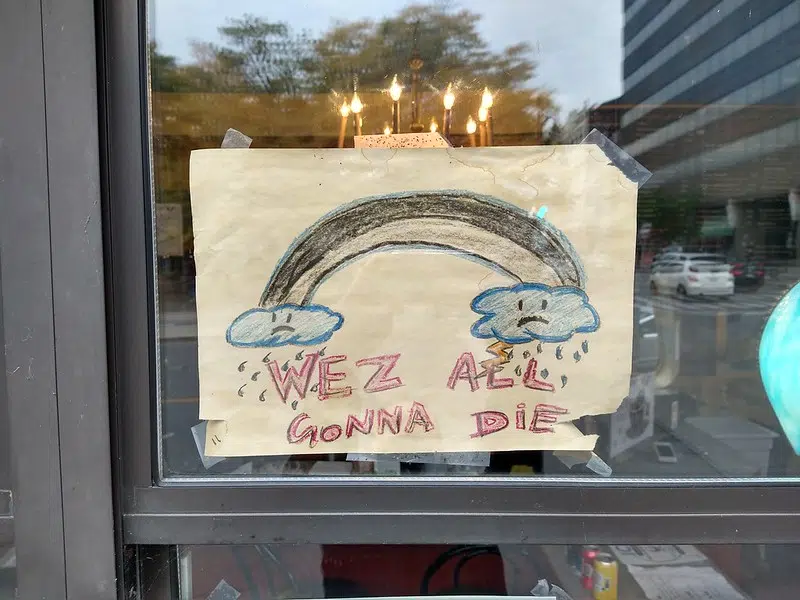 WEZ ALL
GONNA DIE